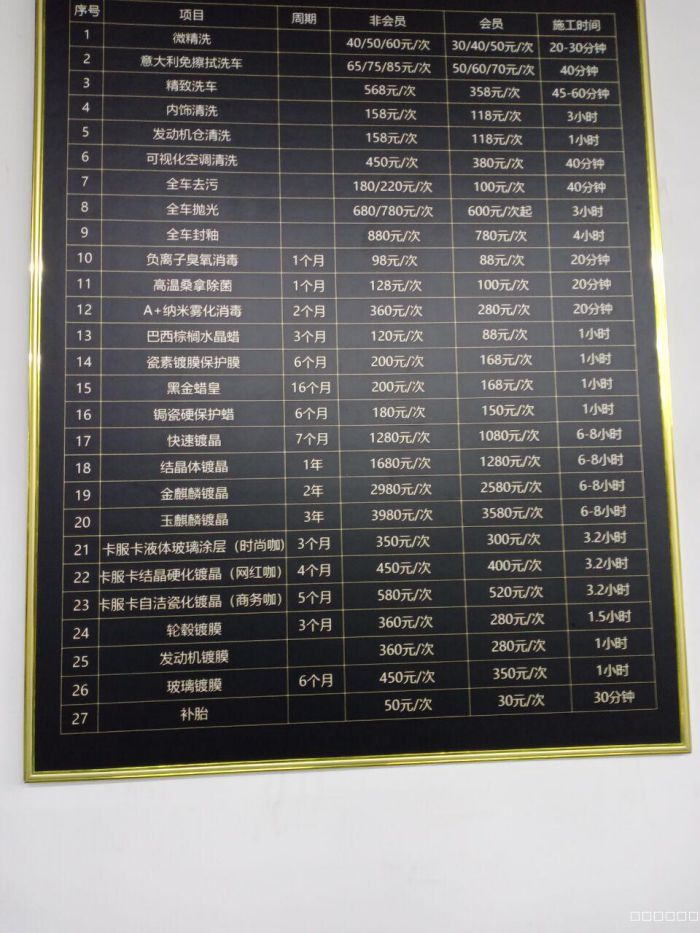 序号 项目 周期 非会员 会员 施工时间
1 微精洗 40/50/60元/次 30/40/50元/次 20-30分钟
2 意大利免擦拭洗车 65/75/85元/次 50/60/70元/次 40分钟
3 精致洗车 568元/次 358元/次 45-60分钟
4 内饰清洗 158元/次 118元/次 3小时
5 发动机仓清洗 158元/次 118元/次 1小时
6 可视化空调清洗 450元/次 380元/次 40分钟
7 全车去污 180/220元/次 100元/次 40分钟
8 全车抛光 680/780元/次 600元/次起 3小时
9 全车封釉 880元/次 780元/次 4小时
10 负离子臭氧消毒 1个月 98元/次 88元/次 20分钟
11 高温桑拿除菌 1个月 128元/次 100元/次 20分钟
12 A+纳米雾化消毒 2个月 360元/次 280元/次 20分钟
13 巴西棕榈水晶蜡 3个月 120元/次 88元/次 1小时
14 瓷素镀膜保护膜 6个月 200元/次 168元/次 1小时
15 黑金蜡皇 16个月 200元/次 168元/次 1小时
16 锔瓷硬保护蜡 6个月 180元/次 150元/次 1小时
17 快速镀晶 7个月 1280元/次 1080元/次 6-8小时
18 结晶体镀晶 1年 1680元/次 1280元/次 6-8小时
19 金麒麟镀晶 2年 2980元/次 2580元/次 6-8小时
20 玉麒麟镀晶 3年 3980元/次 3580元/次 6-8小时
21 卡服卡液体玻璃涂层（时尚咖) 3个月 350元/次 300元/次 3.2小时
22 卡服卡结晶硬化镀晶（网红咖） 4个月 450元/次 400元/次 3.2小时
23 卡服卡自洁瓷化镀晶（商务咖） 5个月 580元/次 520元/次 3.2小时
24 轮毂镀膜 3个月 360元/次 280元/次 1.5小时
25 发动机镀膜 360元/次 280元/次 1小时
26 玻璃镀膜 6个月 450元/次 350元/次 1小时
27 补胎 50元/次 30元/次 30分钟